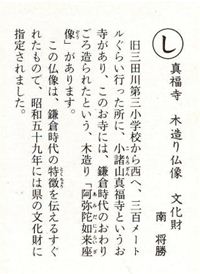 し
真福寺 木造り仏像 文化財
南 将勝
旧三田川第三小学校から西へ、三百メート
ルぐらい行った所に、小諸山真福寺というお
寺があり、このお寺には、鎌倉時代のおわり
ごろ造られたという、木造り「阿弥陀如来座
像」があります。
この仏像は、鎌倉時代の特徴を伝えるすぐ
れたもので、昭和五十九年には県の文化財に
指定されました。